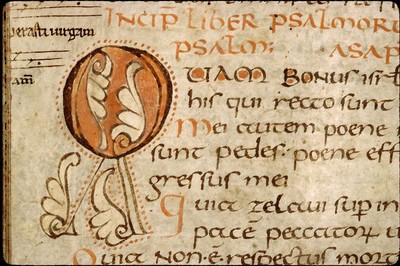 INCIP LIBER PSALMORU
PSALM; ASAP
QUAM BONUS isrl
his qui recto sunt
Mei autem poene
sunt pedes· poene eff
gressus mei
Quia zelavi sup in
pace peccatoru
Quia NON·E· respectus mort
redasti virgam